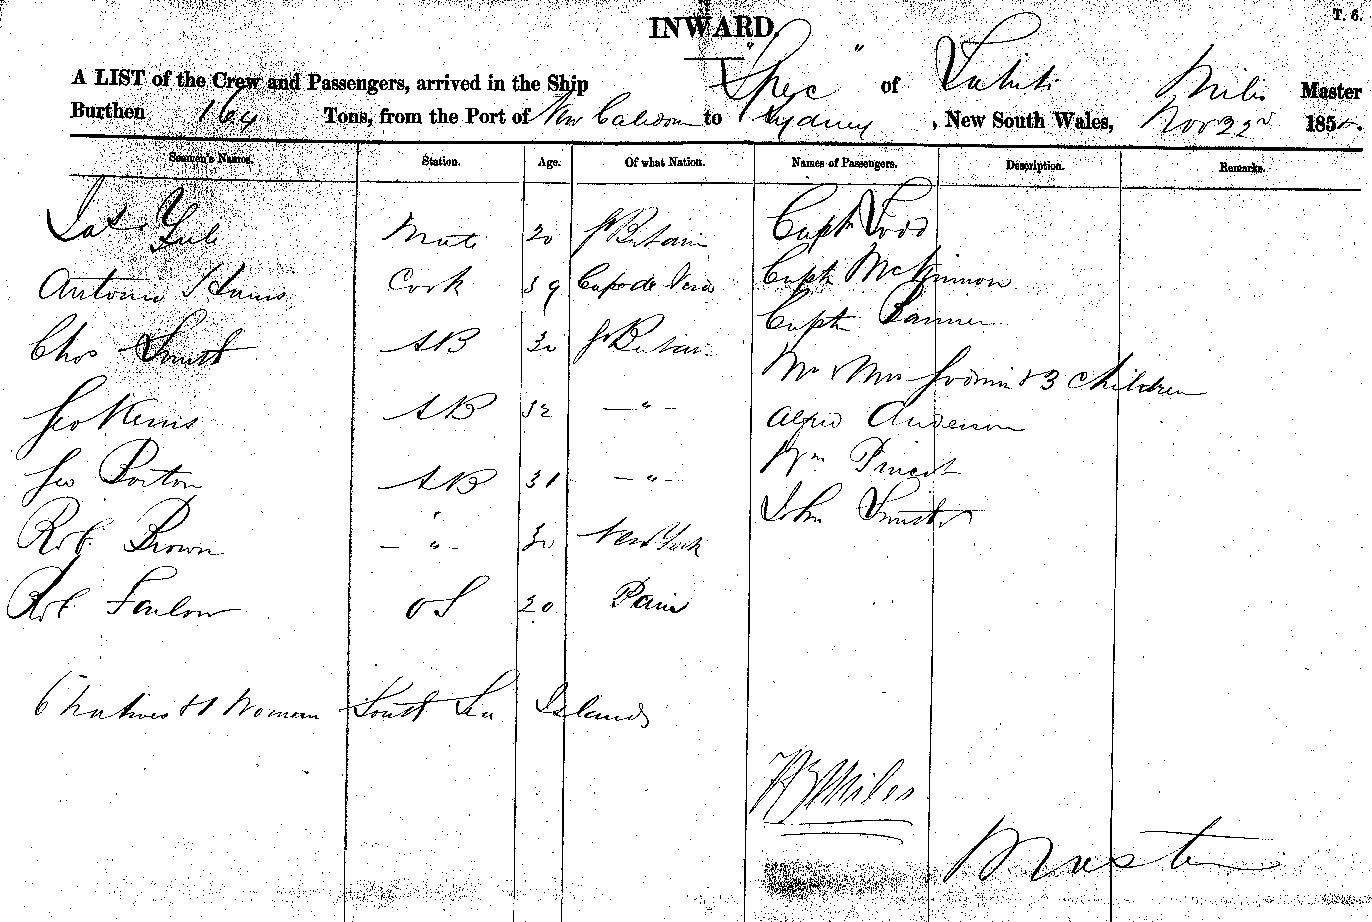 T. 6.
INWARD.
A LIST of the Crew and Passengers, arrived in the Ship "Spec" of Tahiti Miles Master
Burthen 164 Tons, from the Port of New Caledonia to Sydney, New South Wales, Nov 22nd 185
Seamen's Names. Station. Age. Of what Nation. Names of Passengers. Description. Remarks.
Mate 20 Gt Britain Capt Todd
Antonio Cook 39 Cape de Verd Capt McKinnon
Chas Smith AB 30 Gt Britain Capt
Mr & Mrs & 3 Children
Geo AB 32 — " — Alfred Anderson
Geo Porton AB 31 — " — Wm
Robt Brown — " — 30 New York John
Robt OS 20
6 Natives & 1 Woman South Sea Islands
Miles
Master